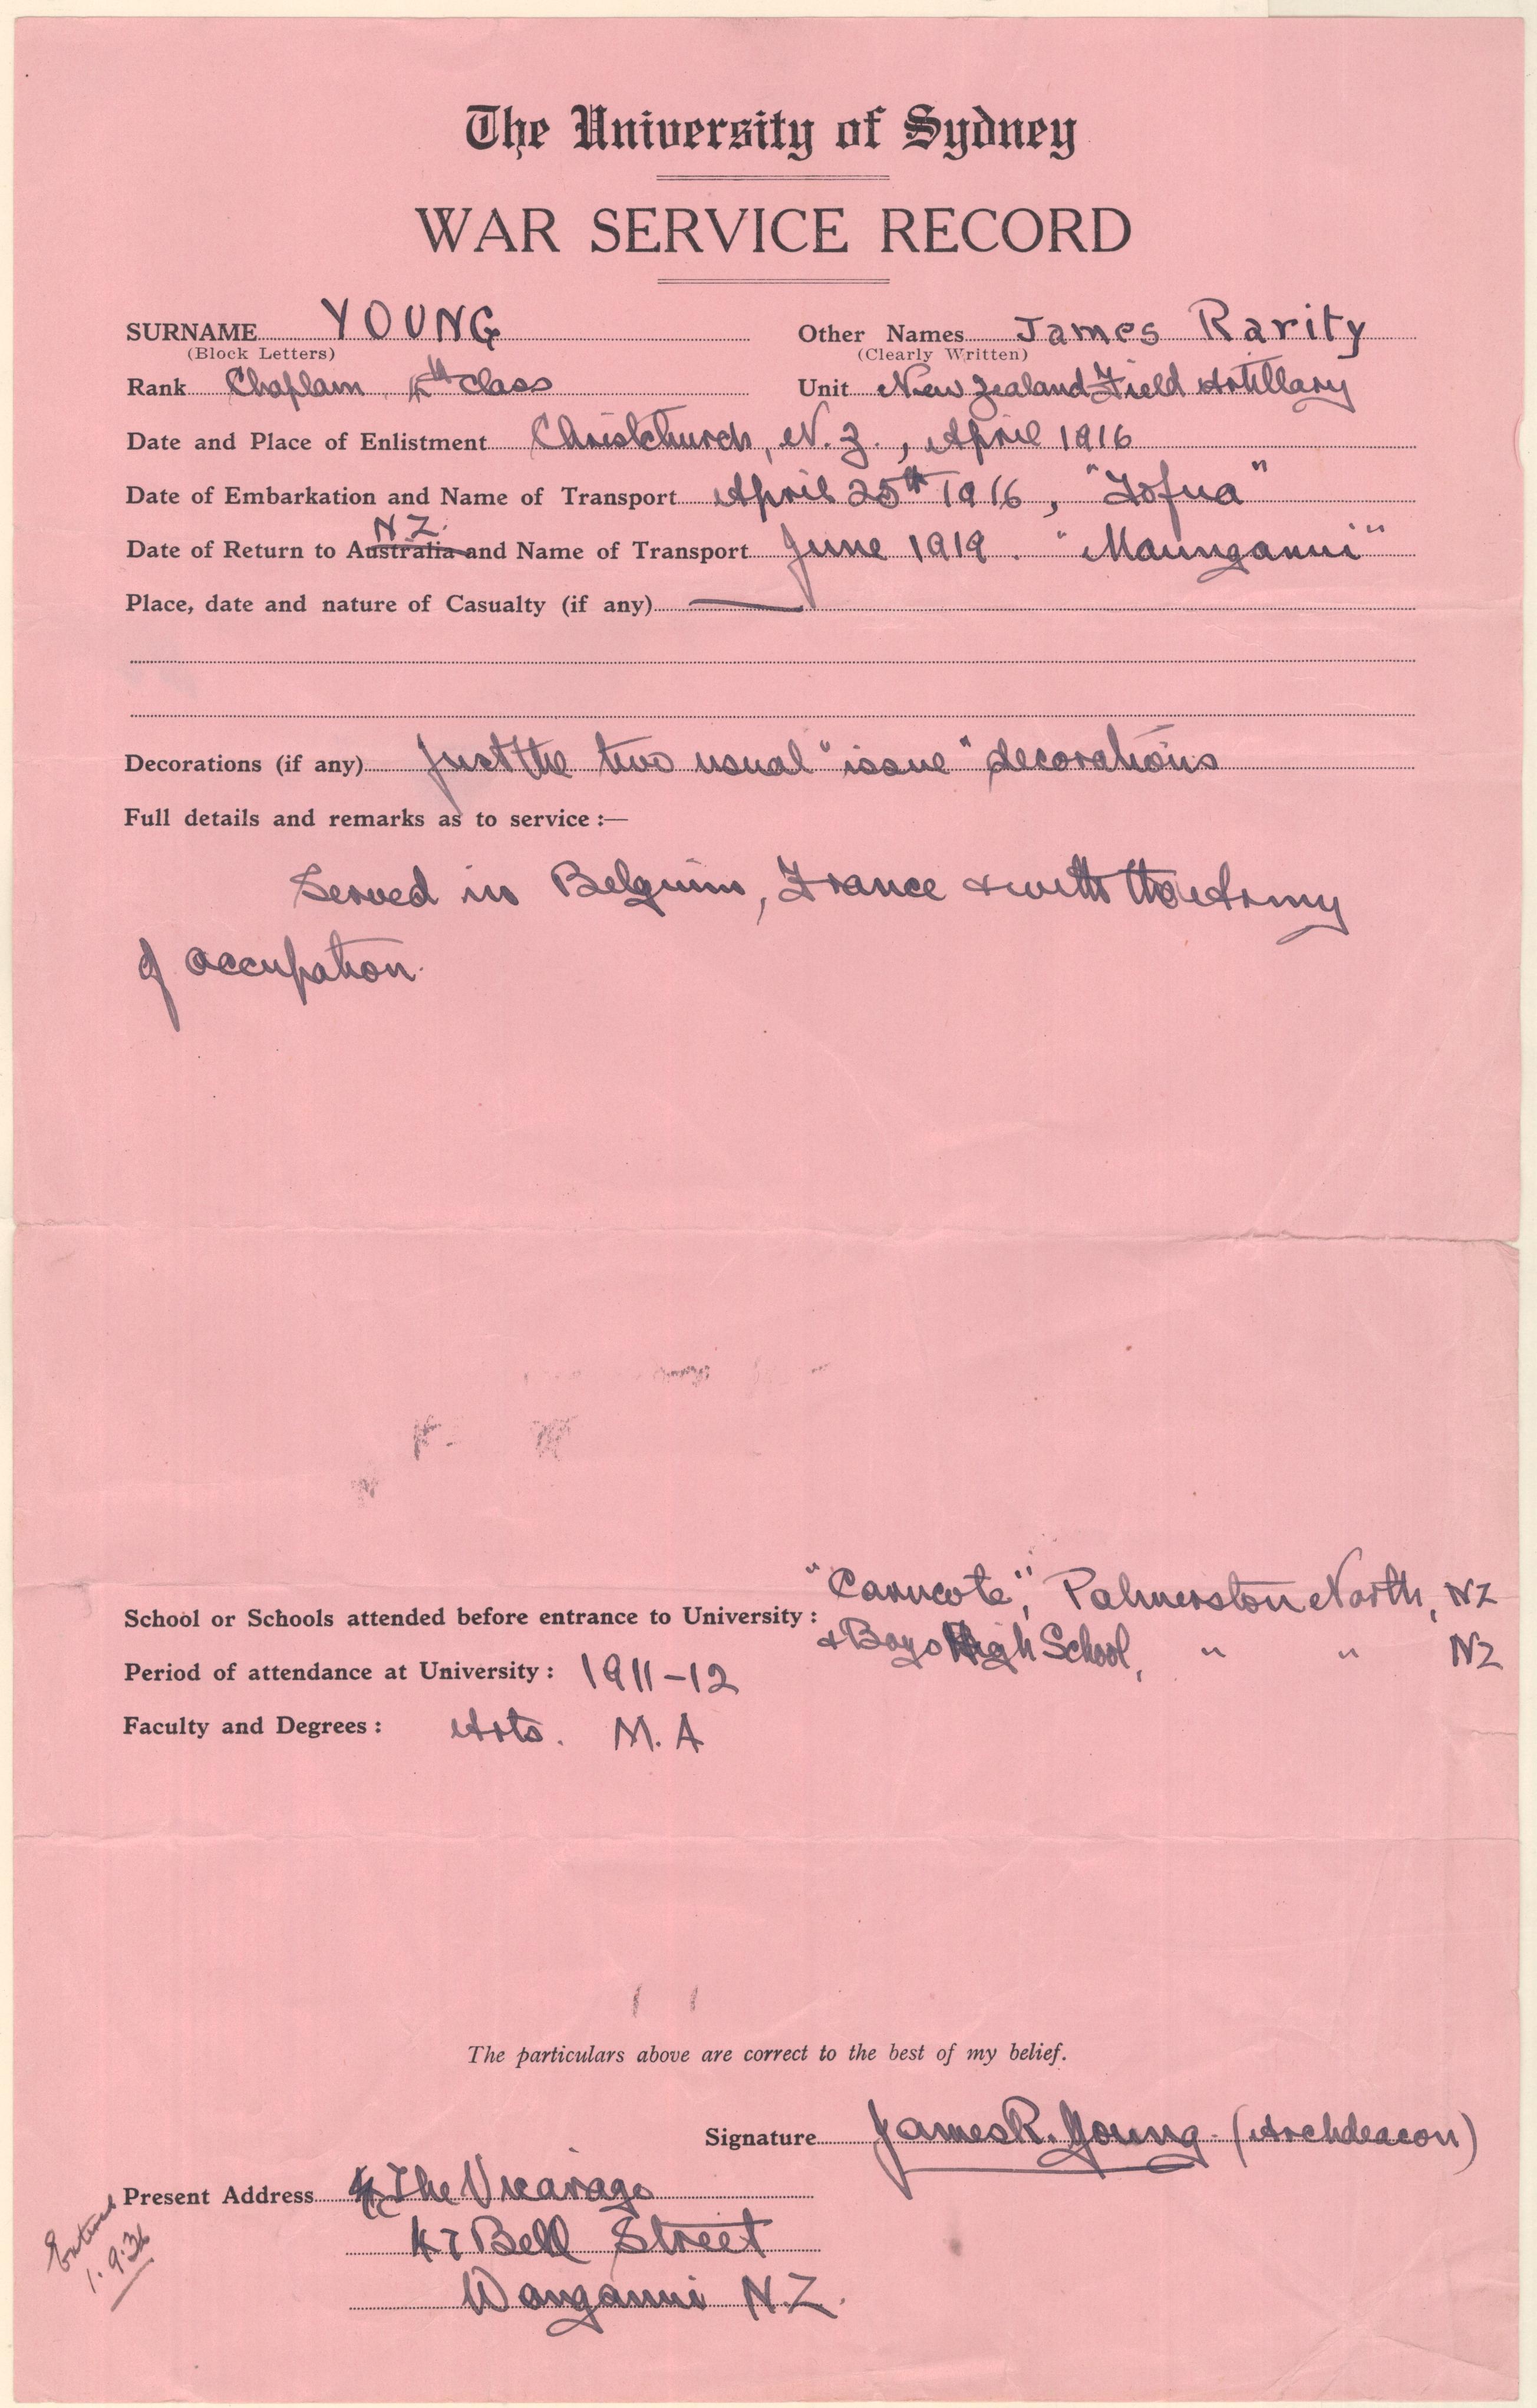 The University of Sydney
WAR SERVICE RECORD
SURNAME YOUNG Other Names James Rarity
(Block Letters) (Clearly Written)
Rank Chaplain 4th class Unit New Zealand Field Artillary
Date and Place of Enlistment Christchurch, N.Z., April 1916
Date of Embarkation and Name of Transport April 25th 1916, "Tofua"
N.Z.
Date of Return to Australia and Name of Transport June 1919. "Maunganui"
Place, date and nature of Casualty (if any) —
Decorations (if any) Just the two usual "issue" decorations
Full details and remarks as to service :—
Served in Belgium, France & with the Army
of occupation.
"Carncote", Palmerston North, NZ
School or Schools attended before entrance to University :
& Boys High School, " " NZ
Period of attendance at University : 1911-12
Faculty and Degrees : Arts. M.A
The particulars above are correct to the best of my belief.
Signature James R. Young. (Archdeacon)
Present Address The Vicarage
47 Bell Street
Wanganui N.Z.
Entered
1.9.36